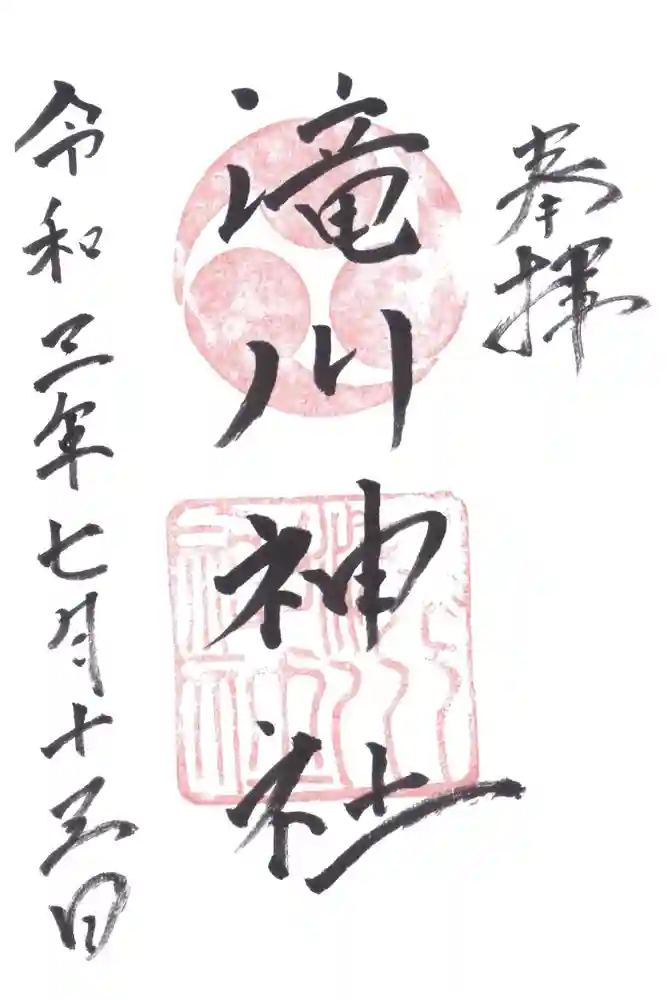 奉拝
滝川神社
令和三年七月十三日